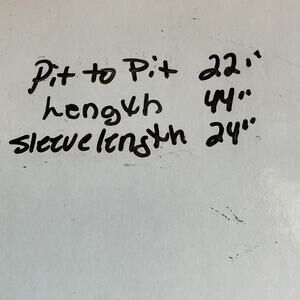 Pit to Pit 22"
Length 44"
Sleeve length 24"